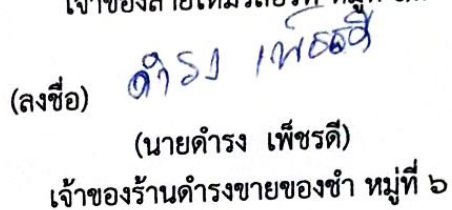 (ลงชื่อ) ดำรง เพ็ชรดี
(นายดำรง เพ็ชรดี)
เจ้าของร้านดำรงขายของชำ หมู่ที่ ๖